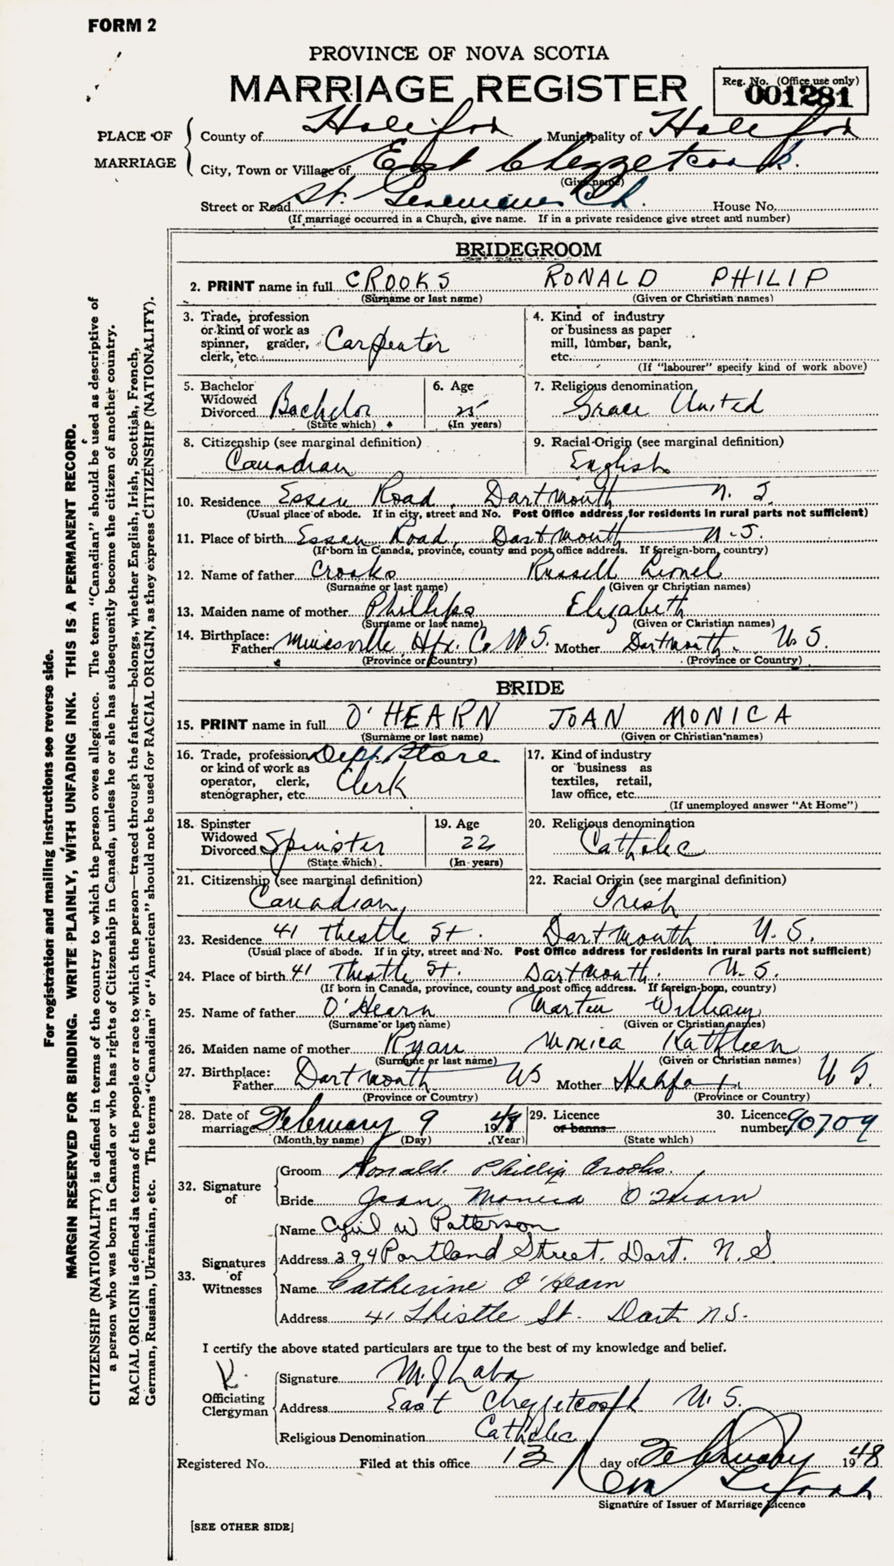 FORM 2
PROVINCE OF NOVA SCOTIA
MARRIAGE REGISTER
Reg. No. (Office use only)
001281
PLACE OF MARRIAGE
County of Halifax Municipality of Halifax
City, Town or Village of East Chezzetcook.
(Give name)
Street or Road St. Ch. House No.
(If marriage occurred in a Church, give name. If in a private residence give street and number)
BRIDEGROOM
2. PRINT name in full CROOKS RONALD PHILIP
(Surname or last name) (Given or Christian names)
3. Trade, profession or kind of work as spinner, grader, clerk, etc. Carpenter
4. Kind of industry or business as paper mill, lumber, bank, etc.
(If "labourer" specify kind of work above)
5. Bachelor Widowed Divorced Bachelor
(State which)
6. Age 25
(In years)
7. Religious denomination
Grace United
8. Citizenship (see marginal definition)
Canadian
9. Racial Origin (see marginal definition)
English
10. Residence Road, Dartmouth N. S.
(Usual place of abode. If in city, street and No. Post Office address for residents in rural parts not sufficient)
11. Place of birth Road, Dartmouth N.S.
(If born in Canada, province, county and post office address. If foreign-born, country)
12. Name of father Crooks Russell Lionel
(Surname or last name) (Given or Christian names)
13. Maiden name of mother Phillips Elizabeth
(Surname or last name) (Given or Christian names)
14. Birthplace: Father Hfx. Co. N.S. Mother Dartmouth, N S.
(Province or Country) (Province or Country)
BRIDE
15. PRINT name in full O'HEARN JOAN MONICA
(Surname or last name) (Given or Christian names)
16. Trade, profession or kind of work as operator, clerk, stenographer, etc. Dept. Store Clerk
17. Kind of industry or business as textiles, retail, law office, etc.
(If unemployed answer "At Home")
18. Spinster Widowed Divorced Spinster
(State which)
19. Age 22
(In years)
20. Religious denomination
Catholic
21. Citizenship (see marginal definition)
Canadian
22. Racial Origin (see marginal definition)
Irish
23. Residence 41 Thistle St. Dartmouth N. S.
(Usual place of abode. If in city, street and No. Post Office address for residents in rural parts not sufficient)
24. Place of birth 41 Thistle St. Dartmouth. N. S.
(If born in Canada, province, county and post office address. If foreign-born, country)
25. Name of father O'Hearn Martin William
(Surname or last name) (Given or Christian names)
26. Maiden name of mother Ryan Monica Kathleen
(Surname or last name) (Given or Christian names)
27. Birthplace: Father Dartmouth NS Mother Halifax N S.
(Province or Country) (Province or Country)
28. Date of marriage February 9 1948
(Month by name) (Day) (Year)
29. Licence or banns
(State which)
30. Licence number 90709
32. Signature of
Groom Ronald Phillip Crooks.
Bride Joan Monica O'Hearn
33. Signatures of Witnesses
Name Cyril W Patterson
Address 394 Portland Street. Dart. N.S.
Name Catherine O'Hearn
Address 41 Thistle St. Dart N.S.
I certify the above stated particulars are true to the best of my knowledge and belief.
Officiating Clergyman
Signature M.J. Laba
Address East Chezzetcook N. S.
Religious Denomination Catholic
Registered No. Filed at this office 13 day of February 1948
Signature of Issuer of Marriage Licence
[SEE OTHER SIDE]
For registration and mailing instructions see reverse side.
MARGIN RESERVED FOR BINDING. WRITE PLAINLY, WITH UNFADING INK. THIS IS A PERMANENT RECORD.
CITIZENSHIP (NATIONALITY) is defined in terms of the country to which the person owes allegiance. The term "Canadian" should be used as descriptive of
a person who was born in Canada or who has rights of Citizenship in Canada, unless he or she has subsequently become the citizen of another country.
RACIAL ORIGIN is defined in terms of the people or race to which the person—traced through the father—belongs, whether English, Irish, Scottish, French,
German, Russian, Ukrainian, etc. The terms "Canadian" or "American" should not be used for RACIAL ORIGIN, as they express CITIZENSHIP (NATIONALITY).